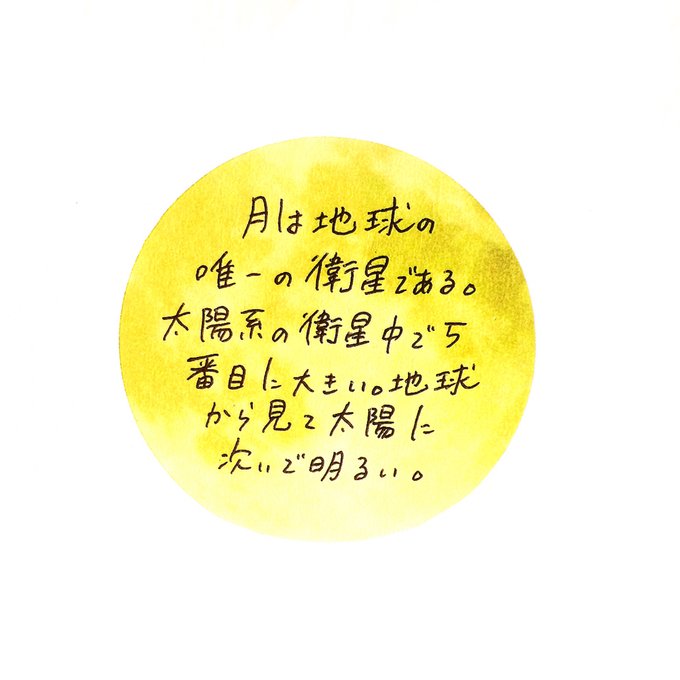 月は地球の
唯一の衛星である。
太陽系の衛星中で5
番目に大きい。地球
から見て太陽に
次いで明るい。